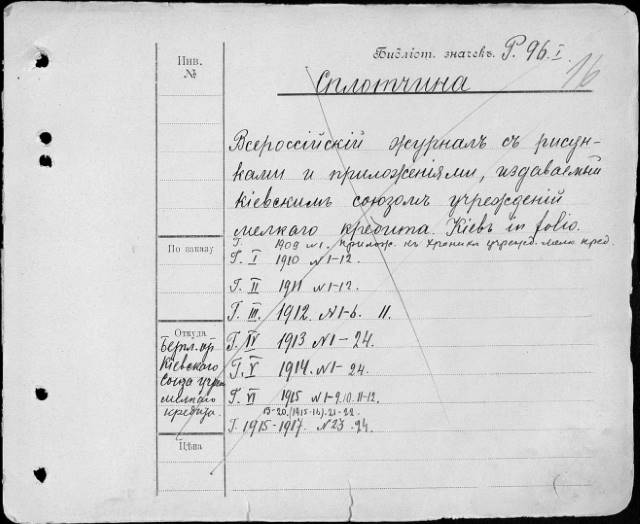 Инв.
№
Библіот. значекъ. Р. 96. I.
16
Сплотчина
Всероссійскій журналъ съ рисун-
ками и приложеніями, издаваемый
кіевскимъ союзомъ учрежденій
мелкаго кредита. Кіевъ in folio.
Г. 1909 №1. прилож. къ Хроника учрежд. мелк. кред.
По заказу
Г. I 1910 №1-12.
Г. II 1911 №1-12.
Г. III. 1912. №1-6. 11.
Откуда
Г. IV 1913 №1-24.
Г. V 1914. №1-24.
Г. VI 1915 №1-9.10.11-12.
13-20.(1915-16).21-22.
Г. 1915-1917. №23. 24.
Кіевскаго
мелкаго
кредита.
Цѣна